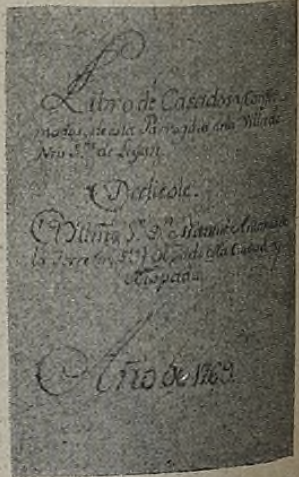 Libro de Casados y Confir
mados, de esta Parroquia de la Villa de
Nra S.ra de Lujan
Dedicole.
Al Illmo S.r D.n Manuel Antonio de
la Torre
Obispado
Año de 1769.